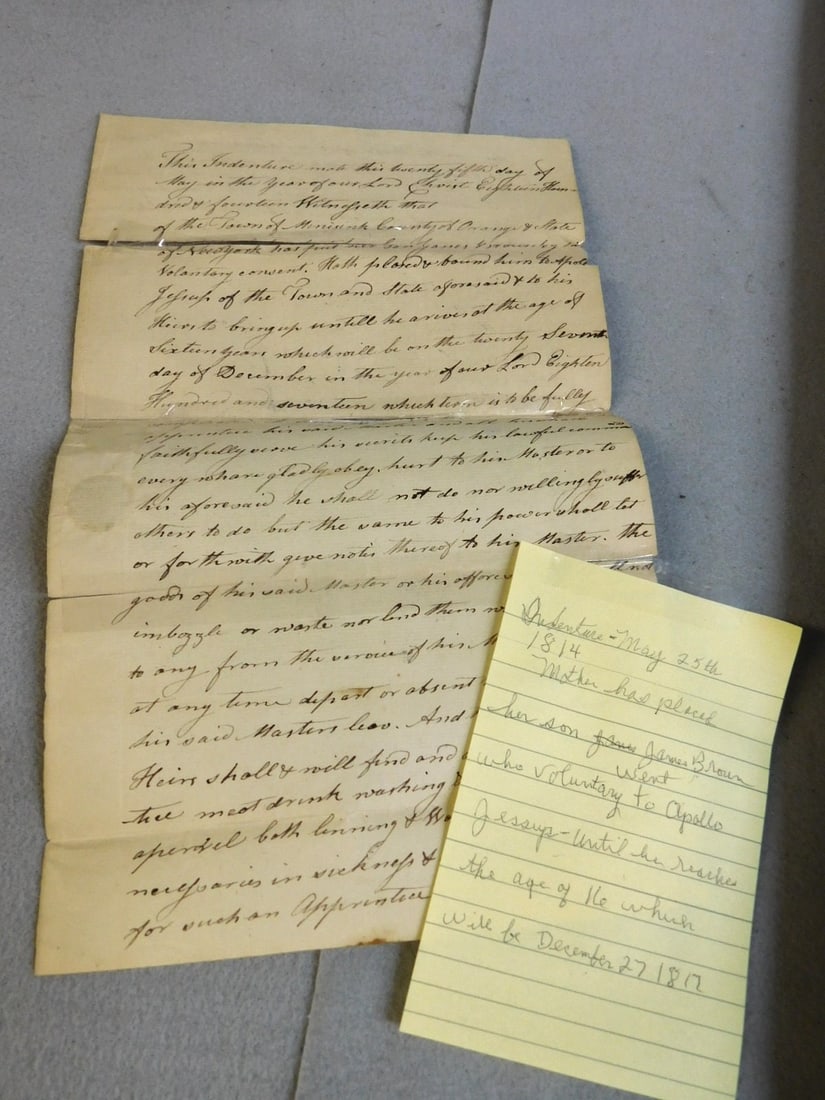 This Indenture made this twenty fifth day of
May in the Year of our Lord Christ Eighteen Hun-
dred & fourteen Witnesseth that
of the Town of Minisink County of Orange & State
of New York has put her Son James Brown by his
Voluntary consent. Hath placed & bound him to Apolo
Jessup of the Town and State aforesaid & to his
Heirs to bring up untill he arives at the age of
Sixteen years which will be on the twenty Seventh
day of December in the year of our Lord Eighteen
Hundred and seventeen which term is to be fully
apprentice his said
faithfully serve his secrits keep his lawful comman
every whare gladly obey. hurt to his Master or to
his aforesaid he shall not do nor willingly suffer
others to do but the same to his power shall let
or forthwith give notis thereof to his Master. the
goods of his said Master or his afores
imbozzle or waste nor lend them
to any from the service of his
at any time depart or absent
his said Masters leav. And
Heirs shall & will find and
tice meat drink washing
aperriel both linning & Wo
necessaries in sickness &
for such an Apprentice
Indenture - May 25th
1814
Mother has placed
her son James Brown
who voluntary went to Apollo
Jessup - Until he reaches
the age of 16 which
will be December 27 1817